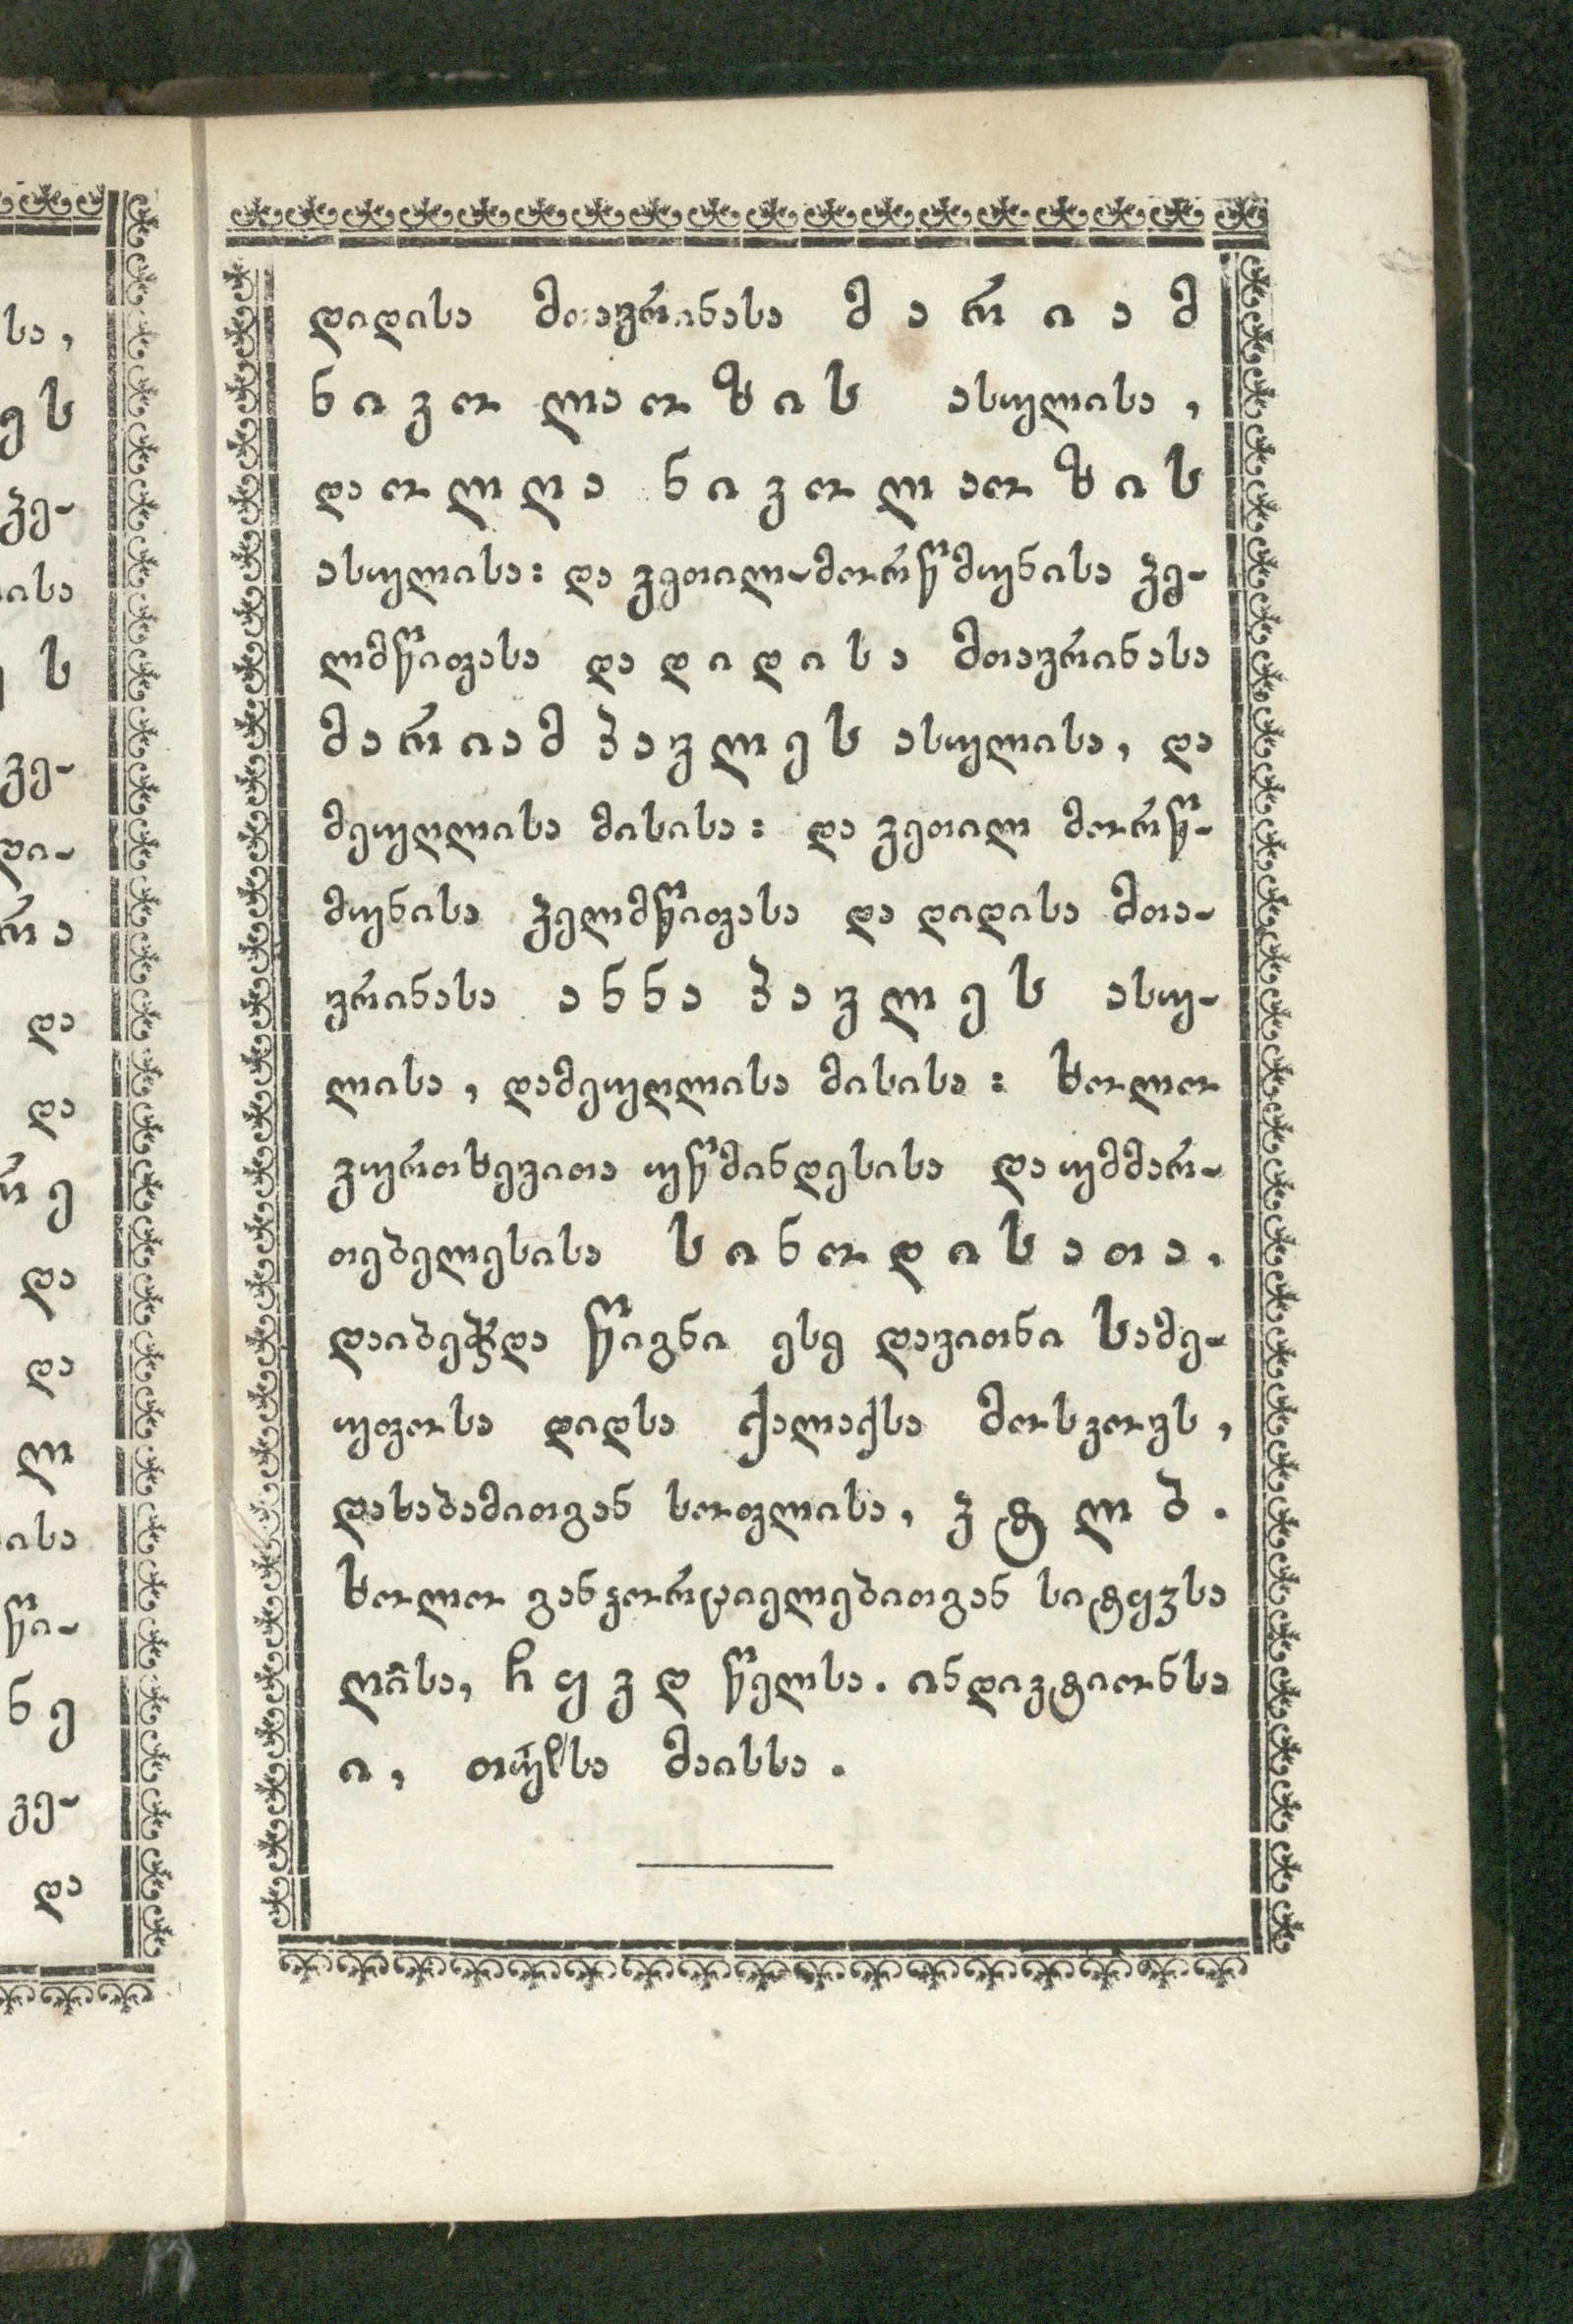 დიდისა მთავრინასა მ ა რ ი ა მ
ნ ი კ ო ლ ა ო ზ ი ს ასულისა,
და ო ლ ღ ა ნ ი კ ო ლ ა ო ზ ი ს
ასულისა: და კეთილ-მორწმუნისა ჴე-
ლმწიფასა და დ ი დ ი ს ა მთავრინასა
მ ა რ ი ა მ პ ა ვ ლ ე ს ასულისა, და
მეუღლისა მისისა: და კეთილ მორწ-
მუნისა ჴელმწიფასა და დიდისა მთა-
ვრინასა ა ნ ნ ა პ ა ვ ლ ე ს ასუ-
ლისა, დამეუღლისა მისისა: ხოლო
კურთხევითა უწმინდესისა დაუმმარ-
თებელესისა ს ი ნ ო დ ი ს ა თ ა,
დაიბეჭდა წიგნი ესე დავითნი სამე-
უფოსა დიდსა ქალაქსა მოსკოვს,
დასაბამითგან სოფლისა, ჴ ტ ლ ბ.
ხოლო განჴორციელებითგან სიტყჳსა
ღი̃სა, ჩ ყ კ დ წელსა. ინდიკტიონსა
ი, თუჱსა მაისსა.